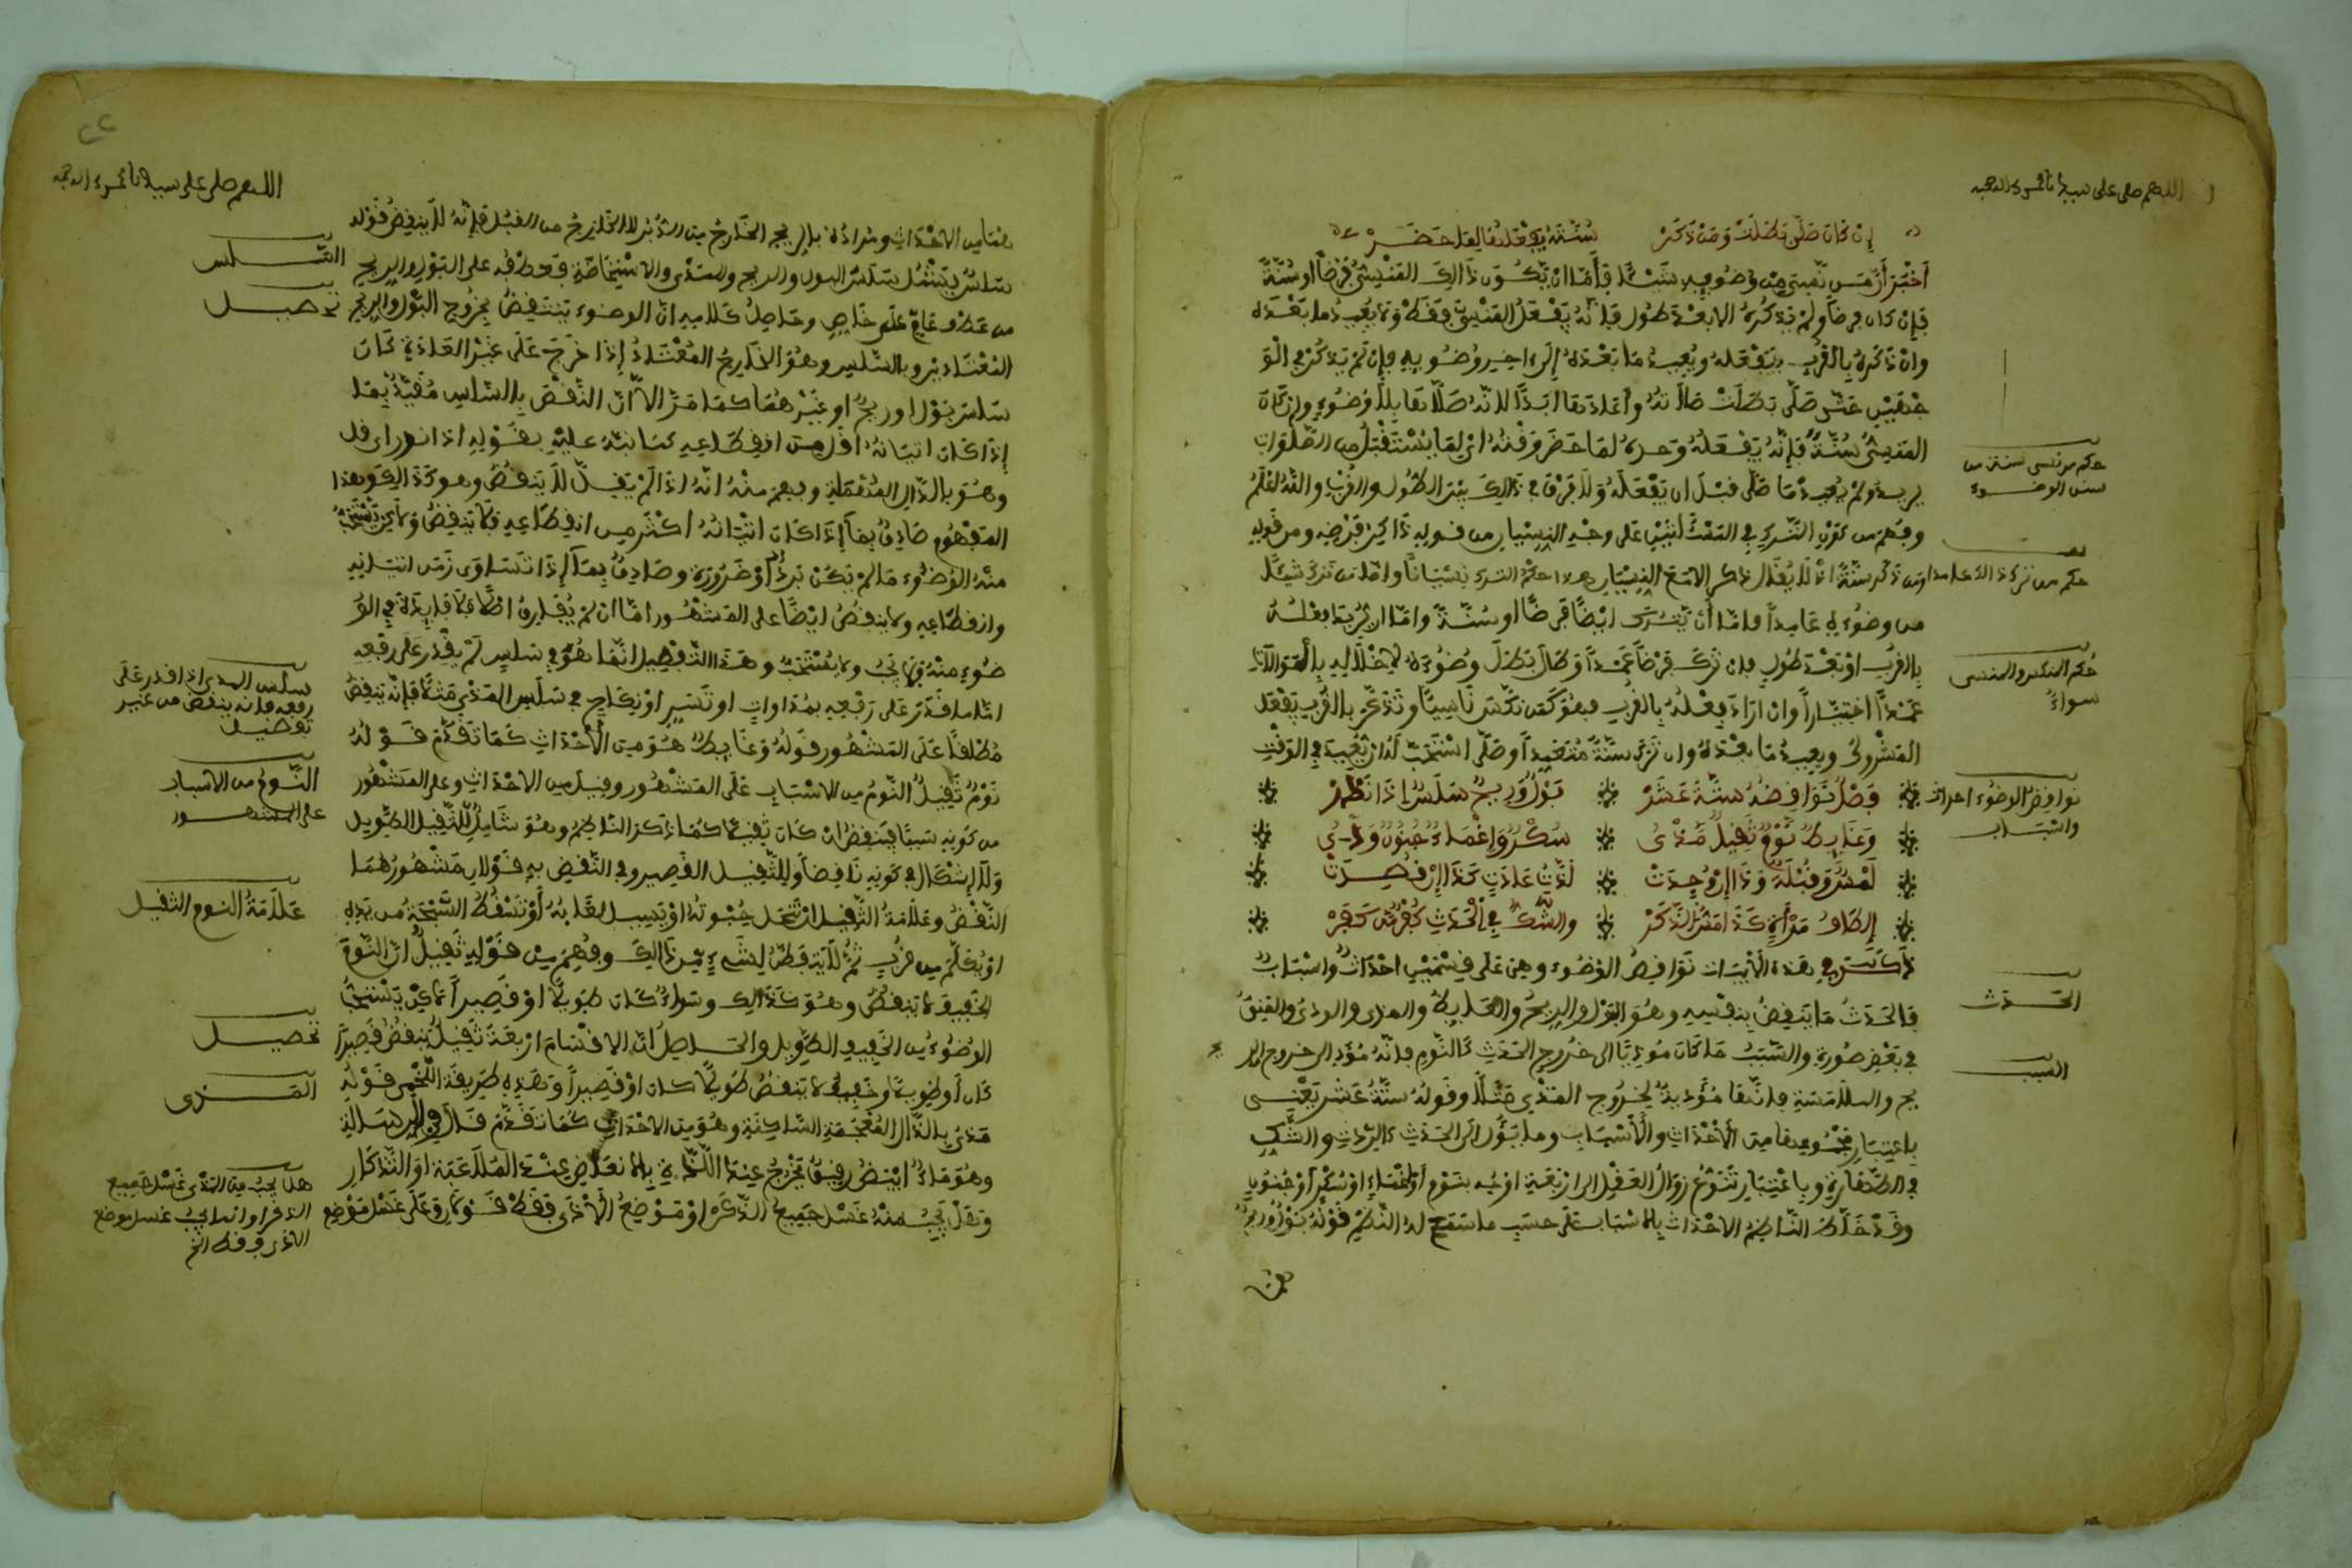 اللهم صل على سيدنا محمد وءاله وصحبه
إن كان صلى بطلت ومن ذكر سنته يفعلها لما حضر
أخبر أن من نسي من وضوئه شيئا فإما أن يكون ذالك المنسي فرضا أو سنة
فإن كان فرضا ولم يذكره إلا بعد طول فإنه يفعل المنسي فقط ولا يعيد ما بعده
وإن ذكره بالقرب يفعله ويعيد ما بعده إلى ءاخر وضوئه فإن لم يذكر في الو
جهين حتى صلى بطلت صلاته وأعادها أبدا لأنه صلاها بلا وضوء وإن كان
المنسي سنة فإنه يفعله وحده لما حضر وقته أي لما يستقبل من الصلوات
يريد ولم يعد ما صلى قبل أن يفعله ولا فرق في ذالك بين الطول والقرب والله أعلم
وفهم من كون الترك في المسألتين على وجه النسيان من قوله ذاكر فرضه ومن قوله
ومن ذكر سنته إذ لا يقال ذكر إلا مع النسيان هذا حكم الترك نسيانا وأما من ترك شيئا
من وضوئه عامدا فإما أن يترك أيضا فرضا أو سنة وإما أن يريد فعله
بالقرب أو بعد طول فإن ترك فرضا عمدا وطال بطل وضوءه لإخلاله بالموالاة
عمدا اختيارا وإن أراد فعله بالقرب فهو كمن نكس ناسيا وتذكر بالقرب يفعل
المتروك ويعيد ما بعده وإن ترك سنة متعمدا وصلى استحب له أن يعيد في الوقت
فصل نواقضه ستة عشر بول وريح سلس إذا ندر
وغائط نوم ثقيل مذي سكر وإغماء جنون ودي
لمس وقبلة وذا إن وجدت لذة عادة كذا إن قصدت
إلطاف مرأة كذا مس الذكر والشك في الحدث كفر من كفر
ذكر في هذه الأبيات نواقض الوضوء وهي على قسمين أحداث وأسباب
فالحدث ما ينقض بنفسه وهو البول والريح والغائط والمذي والودي والمني
في بعض صوره والسبب ما كان مؤديا إلى خروج الحدث كالنوم فإنه مؤد إلى خروج الر
يح والملامسة فإنها مؤدية لخروج المذي مثلا وقوله ستة عشر يعني
باعتبار مجموعها من الأحداث والأسباب وما يؤول إلى الحدث كالردة والشك
في الطهارة وباعتبار تنوع زوال العقل إلى أربعة أوجه بنوم أو إغماء أو سكر أو جنون
وقد خلط الناظم الأحداث بالأسباب على حسب ما سمح له النظم قوله بول وريح
حكم من نسي سنة من
سنن الوضوء
حكم من ترك ذالك عامدا
حكم المنكس والمنسي
سواء
نواقض الوضوء أحداث
وأسباب
الحدث
السبب
٢٢
اللهم صل على سيدنا محمد وءاله وصحبه
هما من الأحداث ومراده بالريح الخارج من الدبر لا الخارج من القبل فإنه لا ينقض قوله
سلس يشمل سلس البول والريح والمذي والاستحاضة فعطفه على البول والريح
من عطف عام على خاص وحاصل كلامه أن الوضوء ينتقض بخروج البول والريح
المعتادين وبالسلس وهو الخارج المعتاد إذا خرج على غير العادة كان
سلس بول أو ريح أو غيرهما كما مر إلا أن النقض بالسلس مقيد بما
إذا كان إتيانه أقل من انقطاعه كما نبه عليه بقوله إذا ندر أي قل
وهو بالدال المهملة وفهم منه أنه إذا لم يقل لا ينقض وهو كذالك وهذا
المفهوم صادق بما إذا كان إتيانه أكثر من انقطاعه فلا ينقض ولاكن يستحب
منه الوضوء ما لم يكن برد أو ضرورة وصادق بما إذا تساوى زمن إتيانه
وانقطاعه ولا ينقض أيضا على المشهور أما إن لم يفارق أصلا فلا فايدة في الو
ضوء منه فلا يجب ولا يستحب وهذا التفصيل إنما هو في سلس لم يقدر على رفعه
أما ما قدر على رفعه بمداوات أو تسر أو نكاح في سلس المذي مثلا فإنه ينقض
مطلقا على المشهور قوله وغائط هو من الأحداث كما تقدم قوله
نوم ثقيل النوم من الأسباب على المشهور وقيل من الأحداث وعلى المشهور
من كونه سببا فينقض إن كان ثقيلا كما ذكر الناظم وهو شامل للثقيل الطويل
ولا إشكال في كونه ناقضا وللثقيل القصير وفي النقض به قولان مشهورهما
النقض وعلامة الثقيل أن تنحل حبوته أو يسيل لعابه أو تسقط السبحة من يده
أو يكلم من قرب ثم لا يتفطن لشيء من ذالك وفهم من قوله ثقيل أن النوم
الخفيف لا ينقض وهو كذالك وسواء كان طويلا أو قصيرا لاكن يستحب
الوضوء من الخفيف الطويل والحاصل أن الأقسام أربعة ثقيل ينقض قصيرا
كان أو طويلا وخفيف لا ينقض طويلا كان أو قصيرا وهذه طريقة اللخمي قوله
مذي بالذال المعجمة الساكنة وهو من الأحداث كما تقدم قال في الرسالة
وهو ماء أبيض رقيق يخرج عند اللذة بالإنعاظ عند الملاعبة أو التذكار
وهل يجب منه غسل جميع الذكر أو موضع الأذى فقط قولان وعلى غسل موضع
السلس
تحصيل
سلس المذي إذا قدر على
رفعه فإنه ينقض من غير
تفصيل
النوم من الأسباب
على المشهور
علامة النوم الثقيل
تحصيل
المذي
هل يجب من المذي غسل جميع
الذكر أو إنما يجب غسل موضع
الأذى فقط الخ